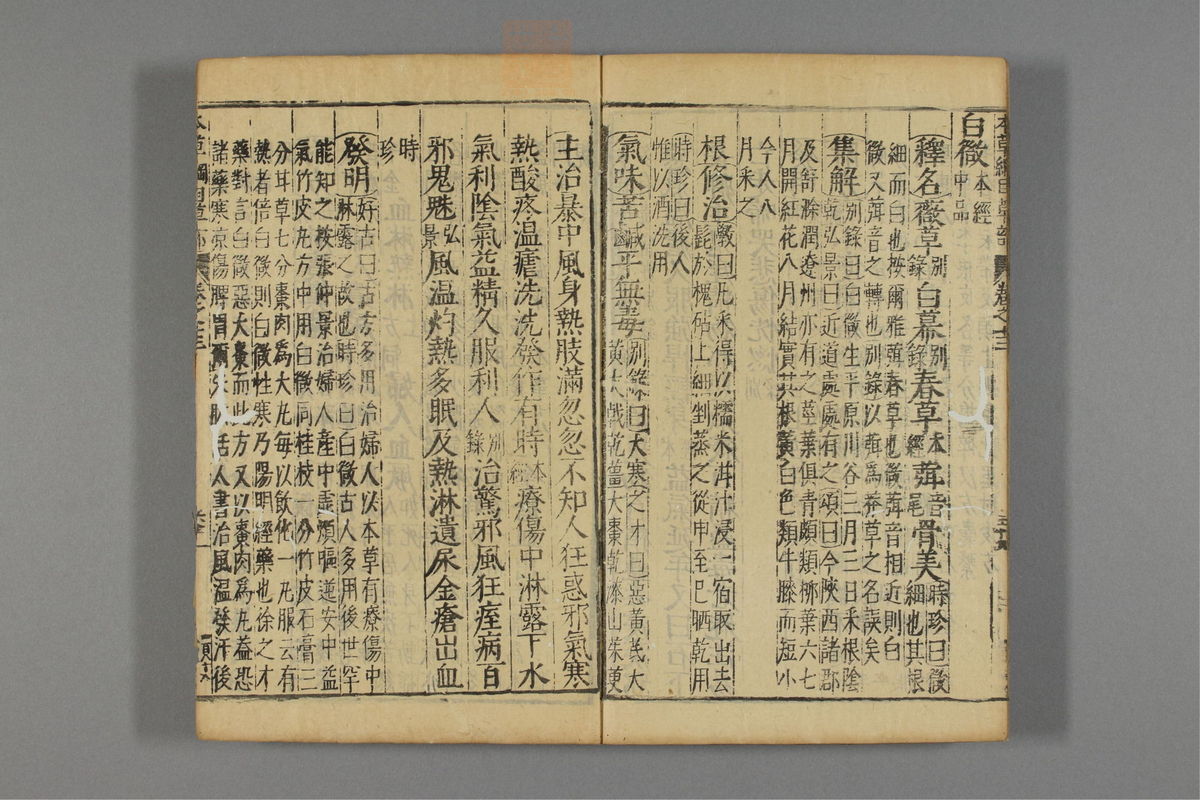 本草綱目草部 卷之十三
白微 本經中品
釋名薇草別錄白幕別錄春草本經葞音尾骨美時珍曰微
細也其根
細而白也按爾雅葞春草也微葞音相近則白
微又葞音之轉也別錄以葞爲莽草之名誤矣
集解別錄曰白微生平原川谷三月三日采根陰
乾弘景曰近道處處有之頌曰今陝西諸郡
及舒滁潤遼州亦有之莖葉俱青頗類柳葉六七
月開紅花八月結實其根黃白色類牛膝而短小
今人八
月采之
根修治斅曰凡采得以糯米泔汁浸一宿取出去
髭於槐砧上細剉蒸之從申至巳晒乾用
時珍曰後人
惟以酒洗用
氣味苦鹹平無毒別錄曰大寒之才曰惡黃芪大
黃大戟乾薑大棗乾漆山茱萸
主治暴中風身熱肢滿忽忽不知人狂惑邪氣寒
熱酸疼温瘧洗洗發作有時本經療傷中淋露下水
氣利陰氣益精久服利人別錄治驚邪風狂痓病百
邪鬼魅弘景風温灼熱多眠及熱淋遺尿金瘡出血
時
珍
發明好古曰古方多用治婦人以本草有療傷中
淋露之故也時珍曰白微古人多用後世罕
能知之按張仲景治婦人產中虛煩嘔逆安中益
氣竹皮丸方中用白微同桂枝一分竹皮石膏三
分甘草七分棗肉爲大丸每以飲化一丸服云有
熱者倍白微則白微性寒乃陽明經藥也徐之才
藥對言白微惡大棗而此方又以棗肉爲丸蓋恐
諸藥寒涼傷脾胃爾朱肱活人書治風温發汗後
本草綱目草部 卷之十三